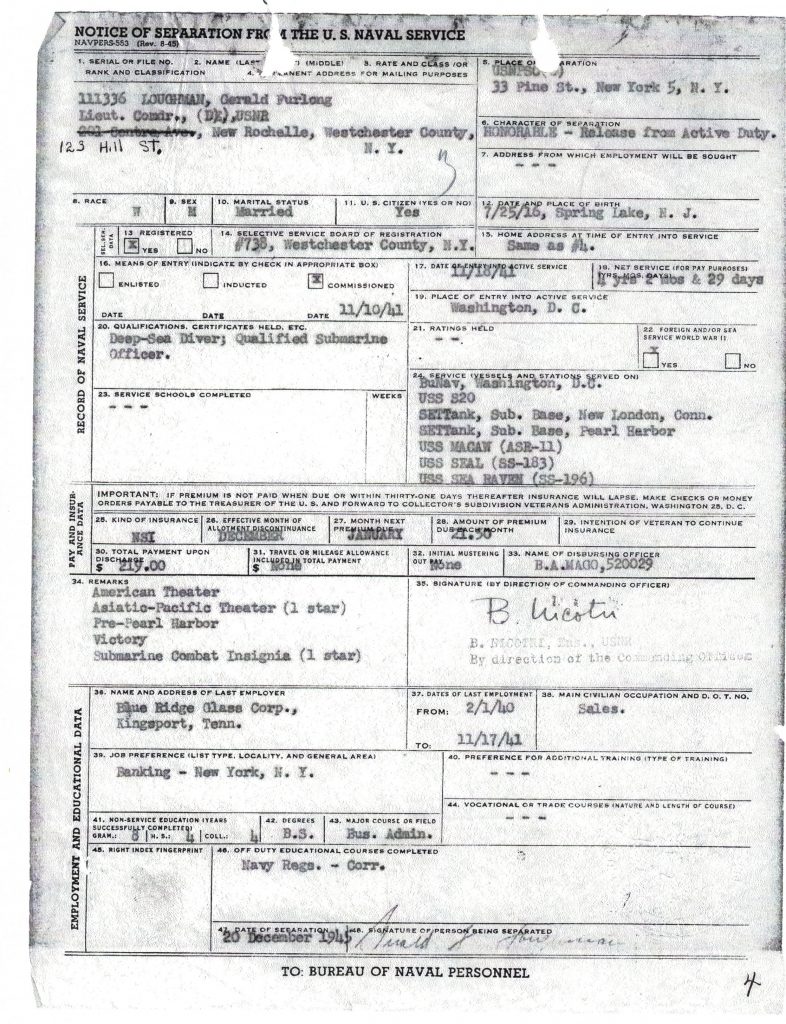 NOTICE OF SEPARATION FROM THE U. S. NAVAL SERVICE
NAVPERS-553 (Rev. 8-45)
1. SERIAL OR FILE NO. 2. NAME (LAST) (MIDDLE) 3. RATE AND CLASS/OR
RANK AND CLASSIFICATION 4. PERMANENT ADDRESS FOR MAILING PURPOSES
111336 LOUGHMAN, Gerald Furlong
Lieut. Comdr., (DE),USNR
Centre Ave., New Rochelle, Westchester County,
123 Hill ST. N. Y.
5. PLACE OF SEPARATION
33 Pine St., New York 5, N. Y.
6. CHARACTER OF SEPARATION
HONORABLE - Release from Active Duty.
7. ADDRESS FROM WHICH EMPLOYMENT WILL BE SOUGHT
- - -
8. RACE
W
9. SEX
M
10. MARITAL STATUS
Married
11. U. S. CITIZEN (YES OR NO)
Yes
12. DATE AND PLACE OF BIRTH
7/25/16, Spring Lake, N. J.
SEL. SER. DATA
13 REGISTERED
X YES NO
14. SELECTIVE SERVICE BOARD OF REGISTRATION
#738, Westchester County, N.Y.
15. HOME ADDRESS AT TIME OF ENTRY INTO SERVICE
Same as #4.
RECORD OF NAVAL SERVICE
16. MEANS OF ENTRY (INDICATE BY CHECK IN APPROPRIATE BOX)
ENLISTED INDUCTED X COMMISSIONED
DATE DATE DATE 11/10/41
17. DATE OF ENTRY INTO ACTIVE SERVICE
11/18/41
18. NET SERVICE (FOR PAY PURPOSES)
(YRS. MOS. DAYS)
4 yrs 2 mos & 29 days
19. PLACE OF ENTRY INTO ACTIVE SERVICE
Washington, D. C.
20. QUALIFICATIONS, CERTIFICATES HELD, ETC.
Deep-Sea Diver; Qualified Submarine
Officer.
21. RATINGS HELD
- -
22 FOREIGN AND/OR SEA
SERVICE WORLD WAR II
X YES NO
23. SERVICE SCHOOLS COMPLETED WEEKS
- - -
24. SERVICE (VESSELS AND STATIONS SERVED ON)
BuNav, Washington, D.C.
USS S20
SETTank, Sub. Base, New London, Conn.
SETTank, Sub. Base, Pearl Harbor
USS MACAW (ASR-11)
USS SEAL (SS-183)
USS SEA RAVEN (SS-196)
PAY AND INSURANCE DATA
IMPORTANT: IF PREMIUM IS NOT PAID WHEN DUE OR WITHIN THIRTY-ONE DAYS THEREAFTER INSURANCE WILL LAPSE. MAKE CHECKS OR MONEY
ORDERS PAYABLE TO THE TREASURER OF THE U. S. AND FORWARD TO COLLECTOR'S SUBDIVISION VETERANS ADMINISTRATION, WASHINGTON 25, D. C.
25. KIND OF INSURANCE
NSI
26. EFFECTIVE MONTH OF
ALLOTMENT DISCONTINUANCE
DECEMBER
27. MONTH NEXT
PREMIUM DUE
JANUARY
28. AMOUNT OF PREMIUM
DUE EACH MONTH
21.50
29. INTENTION OF VETERAN TO CONTINUE
INSURANCE
30. TOTAL PAYMENT UPON
DISCHARGE
$ 219.00
31. TRAVEL OR MILEAGE ALLOWANCE
INCLUDED IN TOTAL PAYMENT
$ None
32. INITIAL MUSTERING
OUT PAY
None
33. NAME OF DISBURSING OFFICER
B.A.MAGO,520029
34. REMARKS
American Theater
Asiatic-Pacific Theater (1 star)
Pre-Pearl Harbor
Victory
Submarine Combat Insignia (1 star)
35. SIGNATURE (BY DIRECTION OF COMMANDING OFFICER)
B. Nicotri
B. NICOTRI, Ens., USNR
By direction of the Commanding Officer
EMPLOYMENT AND EDUCATIONAL DATA
36. NAME AND ADDRESS OF LAST EMPLOYER
Blue Ridge Glass Corp.,
Kingsport, Tenn.
37. DATES OF LAST EMPLOYMENT
FROM: 2/1/40
TO: 11/17/41
38. MAIN CIVILIAN OCCUPATION AND D. O. T. NO.
Sales.
39. JOB PREFERENCE (LIST TYPE, LOCALITY, AND GENERAL AREA)
Banking - New York, N. Y.
40. PREFERENCE FOR ADDITIONAL TRAINING (TYPE OF TRAINING)
- - -
41. NON-SERVICE EDUCATION (YEARS
SUCCESSFULLY COMPLETED)
GRAM.: 8 H. S.: 4 COLL.: 4
42. DEGREES
B.S.
43. MAJOR COURSE OR FIELD
Bus. Admin.
44. VOCATIONAL OR TRADE COURSES (NATURE AND LENGTH OF COURSE)
- - -
45. RIGHT INDEX FINGERPRINT
46. OFF DUTY EDUCATIONAL COURSES COMPLETED
Navy Regs. - Corr.
47. DATE OF SEPARATION
20 December 1945
48. SIGNATURE OF PERSON BEING SEPARATED
TO: BUREAU OF NAVAL PERSONNEL
4